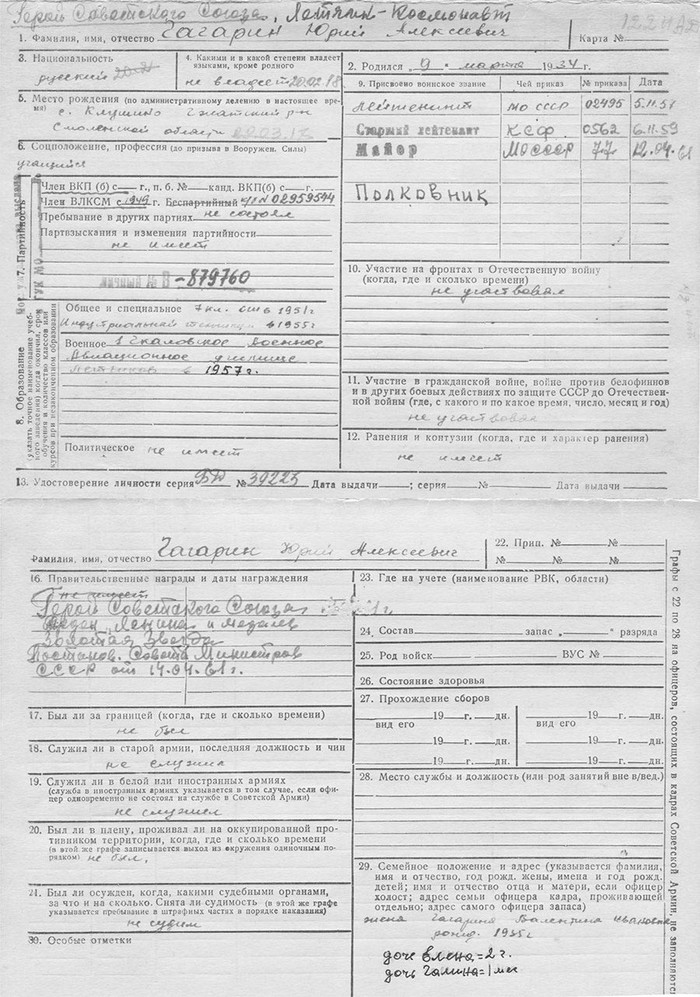 Герой Советского Союза, Летчик-Космонавт
1. Фамилия, имя, отчество Гагарин Юрий Алексеевич Карта №
3. Национальность
русский
4. Какими и в какой степени владеет
языками, кроме родного
не владеет 20.02.58
2. Родился 9 марта 1934 г.
5. Место рождения (по административному делению в настоящее вре-
мя) с. Клушино Гжатский р-н
Смоленской области
9. Присвоено воинское звание Чей приказ № приказа Дата
Лейтенант МО СССР 02495 5.11.57
Старший лейтенант КСФ 0562 6.11.59
Майор МО СССР 77 12.04.61
Полковник
6. Соцположение, профессия (до призыва в Вооружен. Силы)
учащийся
7. Партийность
Член ВКП (б) с — г., п. б. № — канд. ВКП(б) с — г.
Член ВЛКСМ с 1949 г. Беспартийный 02959544
Пребывание в других партиях не состоял
Партвзыскания и изменения партийности
не имеет
ГУК МО
личный № В -879760
10. Участие на фронтах в Отечественную войну
(когда, где и сколько времени)
не участвовал
8. Образование
(указать точное наименование учеб-
ного заведения) когда окончил, срок
обучения и количество классов или
курсов при незаконченном образовании
Общее и специальное 7 кл. 1951 г
Индустриальный техникум в 1955 г
Военное 1 Чкаловское военное
Авиационное училище
летчиков в 1957 г.
Политическое не имеет
11. Участие в гражданской войне, войне против белофиннов
и в других боевых действиях по защите СССР до Отечествен-
ной войны (где, с какого и по какое время, число, месяц и год)
не участвовал
12. Ранения и контузии (когда, где и характер ранения)
не имеет
13. Удостоверение личности серия № 39223 Дата выдачи — ; серия — № — Дата выдачи —
Фамилия, имя, отчество Гагарин Юрий Алексеевич
22. Прип. № №
№ №
16. Правительственные награды и даты награждения
не имеет
Герой Советского Союза
Орден Ленина и медаль
Золотая Звезда
Постанов. Совета Министров
СССР от 14.04.61 г.
17. Был ли за границей (когда, где и сколько времени)
не был
18. Служил ли в старой армии, последняя должность и чин
не служил
19. Служил ли в белой или иностранных армиях
(служба в иностранных армиях указывается в том случае, если офи-
цер одновременно не состоял на службе в Советской Армии)
не служил
20. Был ли в плену, проживал ли на оккупированной про-
тивником территории, когда, где и сколько времени
(в этой же графе записывается выход из окружения одиночным по-
рядком) не был.
21. Был ли осужден, когда, какими судебными органами,
за что и на сколько. Снята ли судимость (в этой же графе
указывается пребывание в штрафных частях в порядке наказания)
не судим
30. Особые отметки
23. Где на учете (наименование РВК, области)
24. Состав запас разряда
25. Род войск ВУС №
26. Состояние здоровья
27. Прохождение сборов
19 — г. — дн. 19 — г. — дн.
вид его вид его
19 — г. — дн. 19 — г. — дн.
19 — г. — дн. 19 — г. — дн.
28. Место службы и должность (или род занятий вне в/вед.)
29. Семейное положение и адрес (указывается фамилия,
имя и отчество, год рожд. жены, имена и год рожд.
детей; имя и отчество отца и матери, если офицер
холост; адрес семьи офицера кадра, проживающей
отдельно; адрес самого офицера запаса)
жена Гагарина Валентина Ивановна
рожд. 1935 г
дочь Елена = 2 г.
дочь Галина = 1 мес
Графы с 22 по 28 на офицеров, состоящих в кадрах Советской Армии, не заполняются